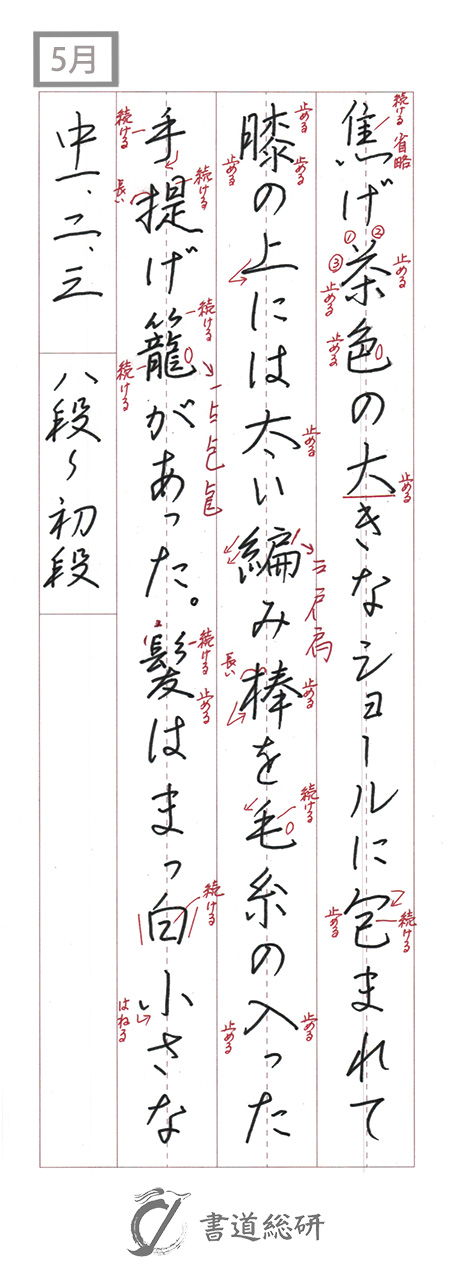 5月
焦げ茶色の大きなショールに包まれて
続ける
省略
①
②
③
止める
止める
止める
止める
続ける
止める
膝の上には太い編み棒を毛糸の入った
止める
止める
止める
止める
長い
止める
続ける
止める
止める
手提げ籠があった。髪はまっ白小さな
続ける
続ける
長い
続ける
続ける
続ける
止める
続ける
はねる
中一、二、三
八段〜初段
書道総研